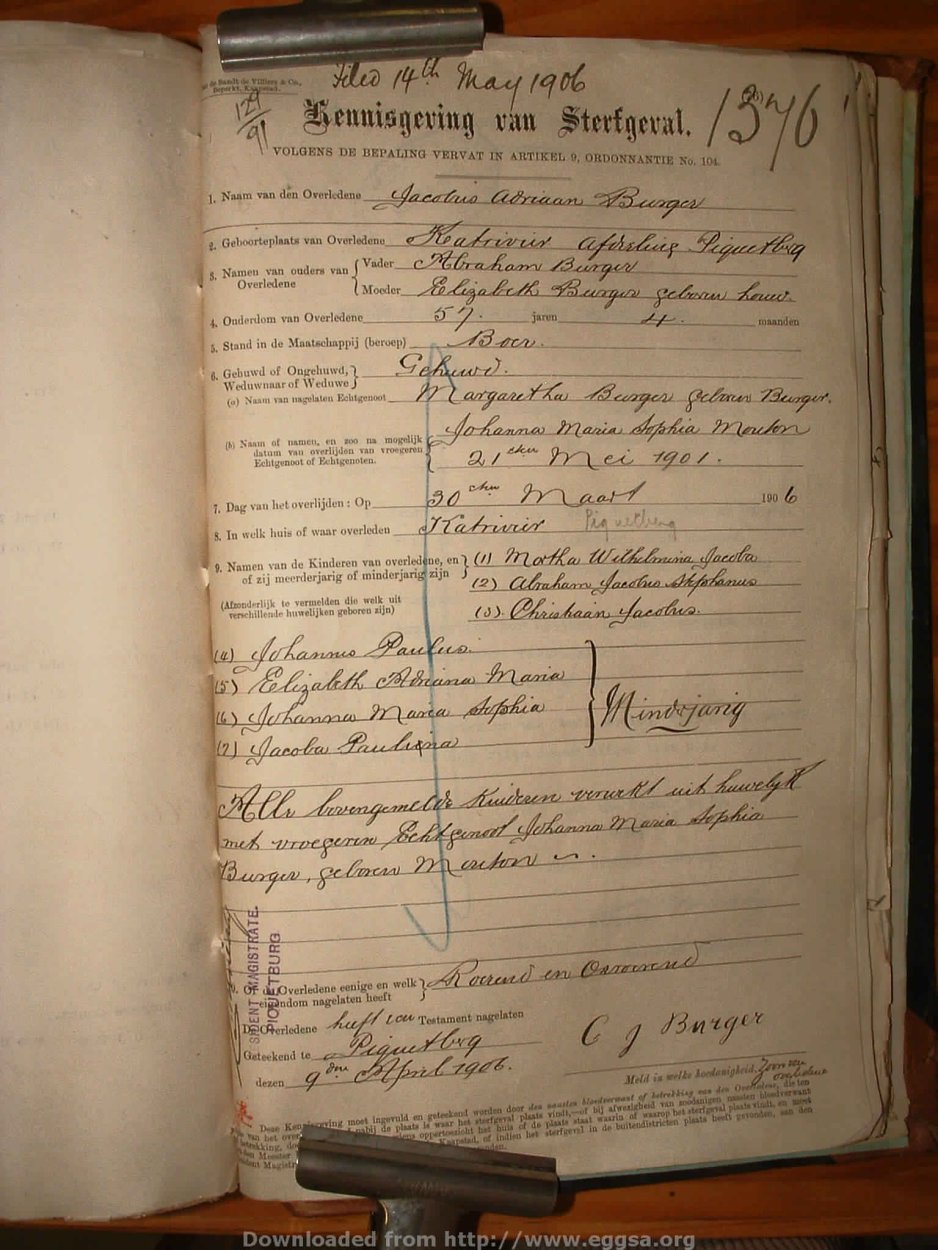 de Sandt de Villiers & Co.,
Beperkt, Kaapstad.
Filed 14th May 1906
129/91
1376
Kennisgeving van Sterfgeval.
VOLGENS DE BEPALING VERVAT IN ARTIKEL 9, ORDONNANTIE No. 104.
1. Naam van den Overledene Jacobus Adriaan Burger
2. Geboorteplaats van Overledene Katrivier Afdeeling Piquetberg
3. Namen van ouders van Overledene { Vader Abraham Burger
Moeder Elizabeth Burger geboren Louw.
4. Ouderdom van Overledene 57. jaren 4. maanden
5. Stand in de Maatschappij (beroep) Boer.
6. Gehuwd of Ongehuwd, Weduwnaar of Weduwe } Gehuwd.
(a) Naam van nagelaten Echtgenoot Margaretha Burger geboren Burger.
(b) Naam of namen, en zoo na mogelijk
datum van overlijden van vroegeren
Echtgenoot of Echtgenoten. { Johanna Maria Sophia Mouton
21sten Mei 1901.
7. Dag van het overlijden: Op 30sten Maart 1906
8. In welk huis of waar overleden Katrivier Piquetberg
9. Namen van de Kinderen van overledene, en
of zij meerderjarig of minderjarig zijn } (1) Martha Wilhelmina Jacoba
(2) Abraham Jacobus Stephanus
(Afzonderlijk te vermelden die welk uit
verschillende huwelijken geboren zijn) (3) Christiaan Jacobus.
(4) Johannes Paulus.
(5) Elizabeth Adriana Maria
(6) Johanna Maria Sophia
(7) Jacoba Paulina
} Minderjarig
Alle bovengemelde Kinderen verwekt uit huwelijk
met vroegeren Echtgenoot Johanna Maria Sophia
Burger, geboren Mouton
Of de Overledene eenige en welk
eigendom nagelaten heeft } Roerend en Onroerend
De Overledene heeft een Testament nagelaten
Geteekend te Piquetberg
dezen 9den April 1906.
C J Burger
Meld in welke hoedanigheid. Zoon van overledene
MAGISTRATE.
PIQUETBURG
Deze Kennisgeving moet ingevuld en geteekend worden door den naasten bloedverwant of betrekking van den Overledene, die ten
nabij de plaats is waar het sterfgeval plaats vindt,—of bij afwezigheid van zoodanigen naasten bloedverwant
oppertoezicht het huis of de plaats staat waarin of waarop het sterfgeval plaats vindt, en moet
Kaapstad, of indien het sterfgeval in de buitendistricten plaats heeft gevonden, aan den
Downloaded from http://www.eggsa.org